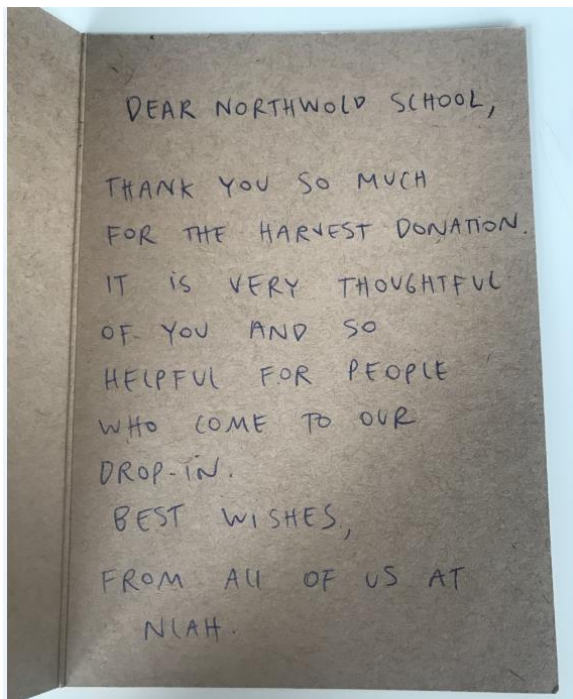 DEAR NORTHWOLD SCHOOL,
THANK YOU SO MUCH
FOR THE HARVEST DONATION.
IT IS VERY THOUGHTFUL
OF YOU AND SO
HELPFUL FOR PEOPLE
WHO COME TO OUR
DROP-IN.
BEST WISHES,
FROM ALL OF US AT
NLAH.